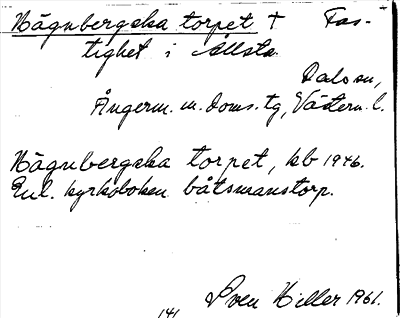 Hägnbergska torpet † Fas-
tighet i Allsta
Dals sn,
Ångerm. m. doms. tg, Västern. l.
Hägnbergska torpet, kb 1946.
Enl. kyrkoboken båtsmanstorp.
Sven Hiller 1961.
141